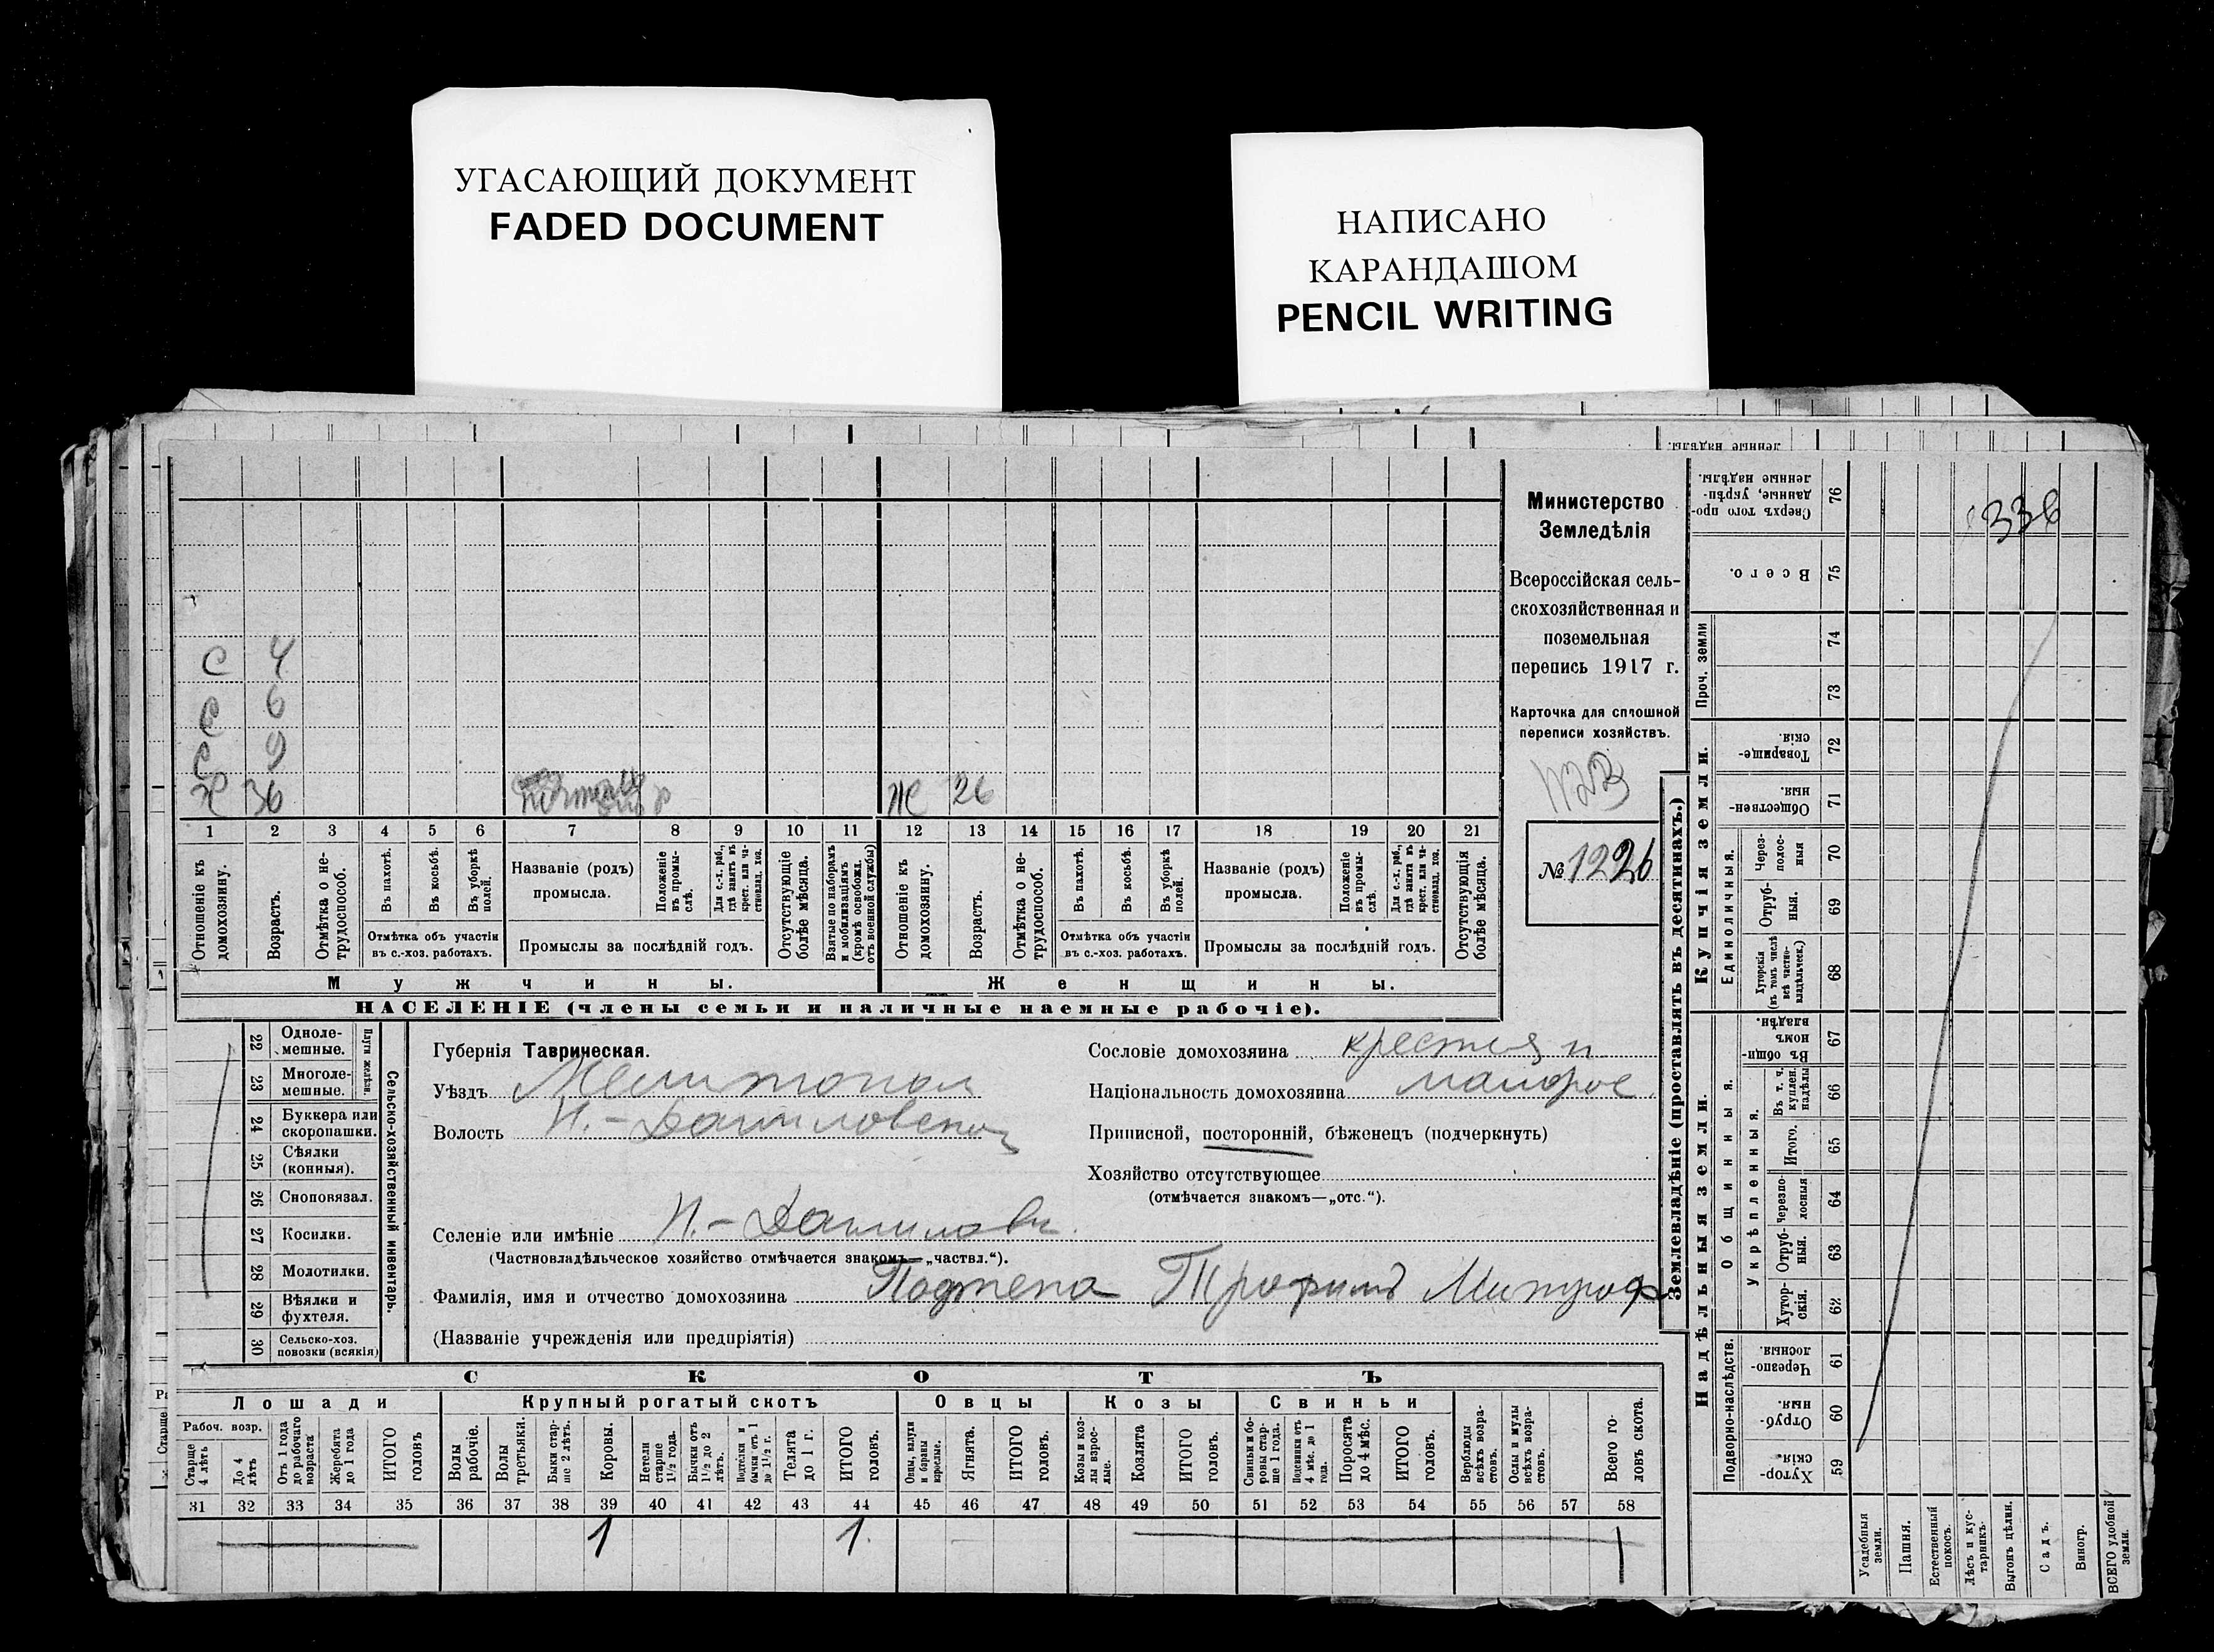 УГАСАЮЩИЙ ДОКУМЕНТ
FADED DOCUMENT
НАПИСАНО
КАРАНДАШОМ
PENCIL WRITING
ленные надѣлы.
Министерство
Земледѣлія
Всероссійская сель-
скохозяйственная и
поземельная
перепись 1917 г.
Карточка для сплошной
переписи хозяйствъ.
№ 1226
С 4
С 6
С 9
Х 36
Ж 26
1 2 3 4 5 6 7 8 9 10 11 12 13 14 15 16 17 18 19 20 21
Отношеніе къ домохозяину.
Возрастъ.
Отмѣтка о не-трудоспособ.
Въ пахотѣ.
Въ косьбѣ.
Въ уборкѣ полей.
Отмѣтка объ участіи
въ с.-хоз. работахъ.
Названіе (родъ)
промысла.
Положеніе въ промы-слѣ.
Для с.-х. раб., гдѣ занятъ въ крест. или ча-стновлад. хоз.
Промыслы за послѣдній годъ.
Отсутствующіе болѣе мѣсяца.
Взятые по наборамъ и мобилизаціямъ (кромѣ освобожд. отъ военной службы)
Отношеніе къ домохозяину.
Возрастъ.
Отмѣтка о не-трудоспособ.
Въ пахотѣ.
Въ косьбѣ.
Въ уборкѣ полей.
Отмѣтка объ участіи
въ с.-хоз. работахъ.
Названіе (родъ)
промысла.
Положеніе въ промы-слѣ.
Для с.-х. раб., гдѣ занята въ крест. или ча-стновлад. хоз.
Промыслы за послѣдній годъ.
Отсутствующія болѣе мѣсяца.
Мужчины.
Женщины.
НАСЕЛЕНІЕ (члены семьи и наличные наемные рабочіе).
22 Одноле-мешные.
23 Многоле-мешные.
Плуги желѣзн.
24 Буккера или скоропашки.
25 Сѣялки (конныя).
26 Сноповязал.
27 Косилки.
28 Молотилки.
29 Вѣялки и фухтеля.
30 Сельско-хоз. повозки (всякія)
Сельско-хозяйственный инвентарь.
Губернія Таврическая.
Уѣздъ Мелитопол
Волость Н.-Даниловская
Селеніе или имѣніе Н.-Даниловк
(Частновладѣльческое хозяйство отмѣчается знакомъ—„частвл.“).
Фамилія, имя и отчество домохозяина Подтепа Трофимъ Митроф
(Названіе учрежденія или предпріятія)
Сословіе домохозяина крестьян
Національность домохозяина малорос.
Приписной, посторонній, бѣженецъ (подчеркнуть)
Хозяйство отсутствующее
(отмѣчается знакомъ—„отс.“).
СКОТЪ
Лошади
Крупный рогатый скотъ
Овцы
Козы
Свиньи
Рабоч. возр.
Старше 4 лѣтъ
До 4 лѣтъ
Отъ 1 года до рабочаго возраста
Жеребята до 1 года
ИТОГО головъ
Волы рабочіе.
Волы третьяки.
Быки стар-ше 2 лѣтъ.
Коровы.
Нетели старше 1½ года.
Бычки отъ 1½ до 2 лѣтъ.
Подтелки и бычки отъ 1 до 1½ г.
Телята до 1 г.
ИТОГО головъ.
Овцы, валухи и бараны взрослые.
Ягнята.
ИТОГО головъ.
Козы и коз-лы взрос-лые.
Козлята
ИТОГО головъ.
Свиньи и бо-ровы стар-ше 1 года.
Подсвинки отъ 4 мѣс. до 1 года.
Поросята до 4 мѣс.
ИТОГО головъ.
Верблюды всѣхъ возра-стовъ.
Ослы и мулы всѣхъ возра-стовъ.
Всего го-ловъ скота.
31 32 33 34 35 36 37 38 39 40 41 42 43 44 45 46 47 48 49 50 51 52 53 54 55 56 57 58
1 1 1
Землевладѣніе (проставлять въ десятинахъ.)
Надѣльныя земли.
Купчія земли.
Проч. земли
Подворно-наслѣдств.
Общинныя.
Укрѣпленныя.
Единоличныя.
Сверхъ того про-данные, укрѣп-ленные надѣлы. 76
336
Всего. 75
74
73
Товарище-скія. 72
Обществен-ныя. 71
Через-полос-ныя 70
Отруб-ныя. 69
Хуторскія (въ томъ числѣ всѣ частно-владѣльческ.) 68
Въ общи-номъ владѣн. 67
Въ т. ч. куплен. надѣлы 66
Итого. 65
Черезпо-лосныя 64
Отруб-ныя. 63
Хутор-скія. 62
Черезпо-лосныя. 61
Отруб-ныя. 60
Хутор-скія. 59
Усадебныя земли.
Пашня.
Естественный покосъ.
Лѣсъ и кус-тарникъ.
Выгонъ цѣлин.
Садъ.
Виногр.
ВСЕГО удобной земли.